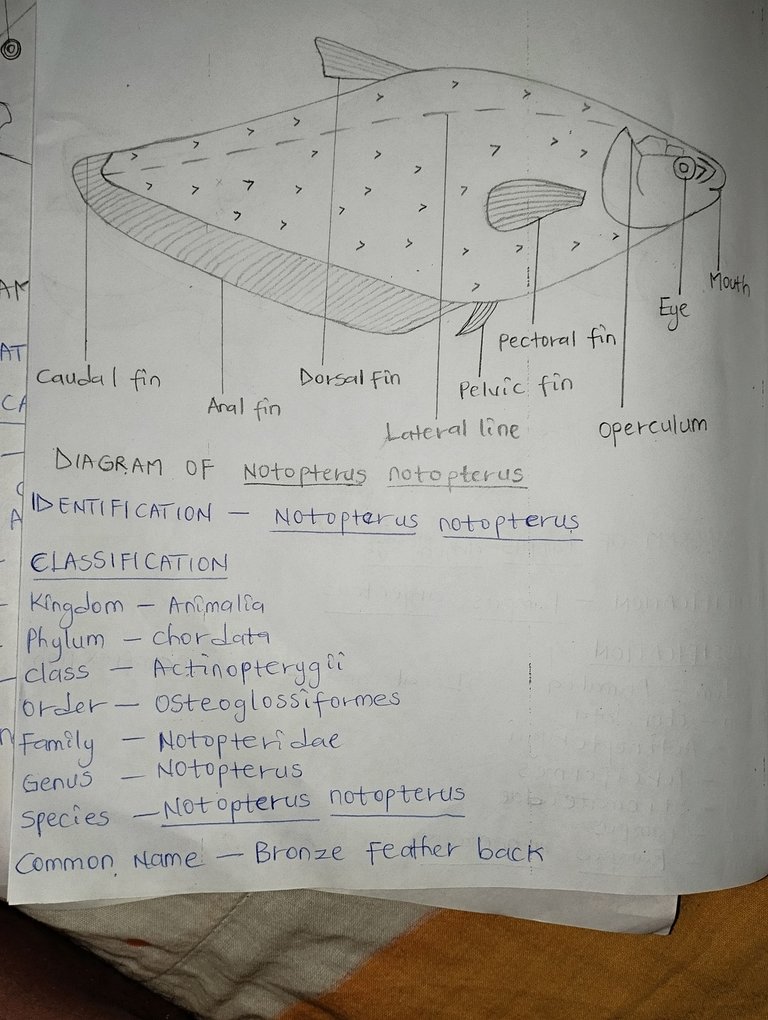 Mouth
Eye
Pectoral fin
Caudal fin
Dorsal fin
Pelvic fin
Anal fin
Lateral line
Operculum
DIAGRAM OF Notopterus notopterus
IDENTIFICATION – Notopterus notopterus
CLASSIFICATION
Kingdom – Animalia
Phylum – chordata
class – Actinopterygii
order – Osteoglossiformes
Family – Notopteridae
Genus – Notopterus
species – Notopterus notopterus
Common Name – Bronze Feather back